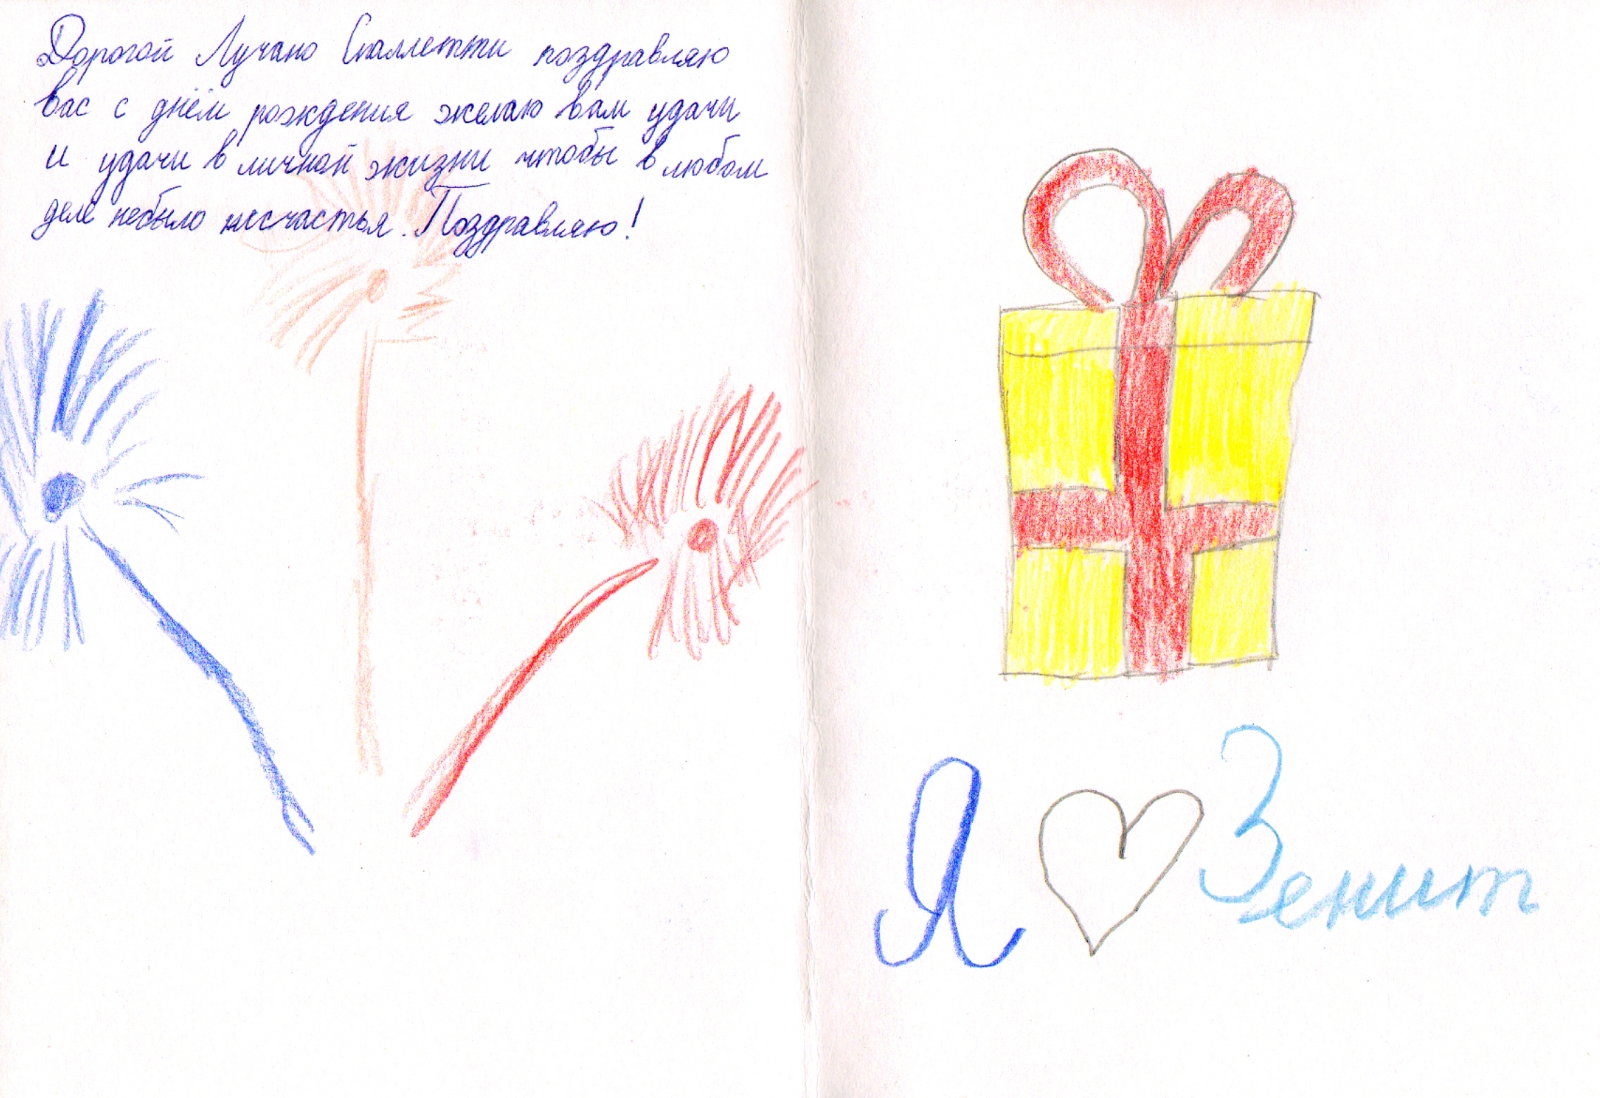 Дорогой Лучано Спаллетти поздравляю
вас с днём рождения желаю вам удачи
и удачи в личной жизни чтобы в любом
деле небыло несчастья. Поздравляю!
Я ♡ Зенит